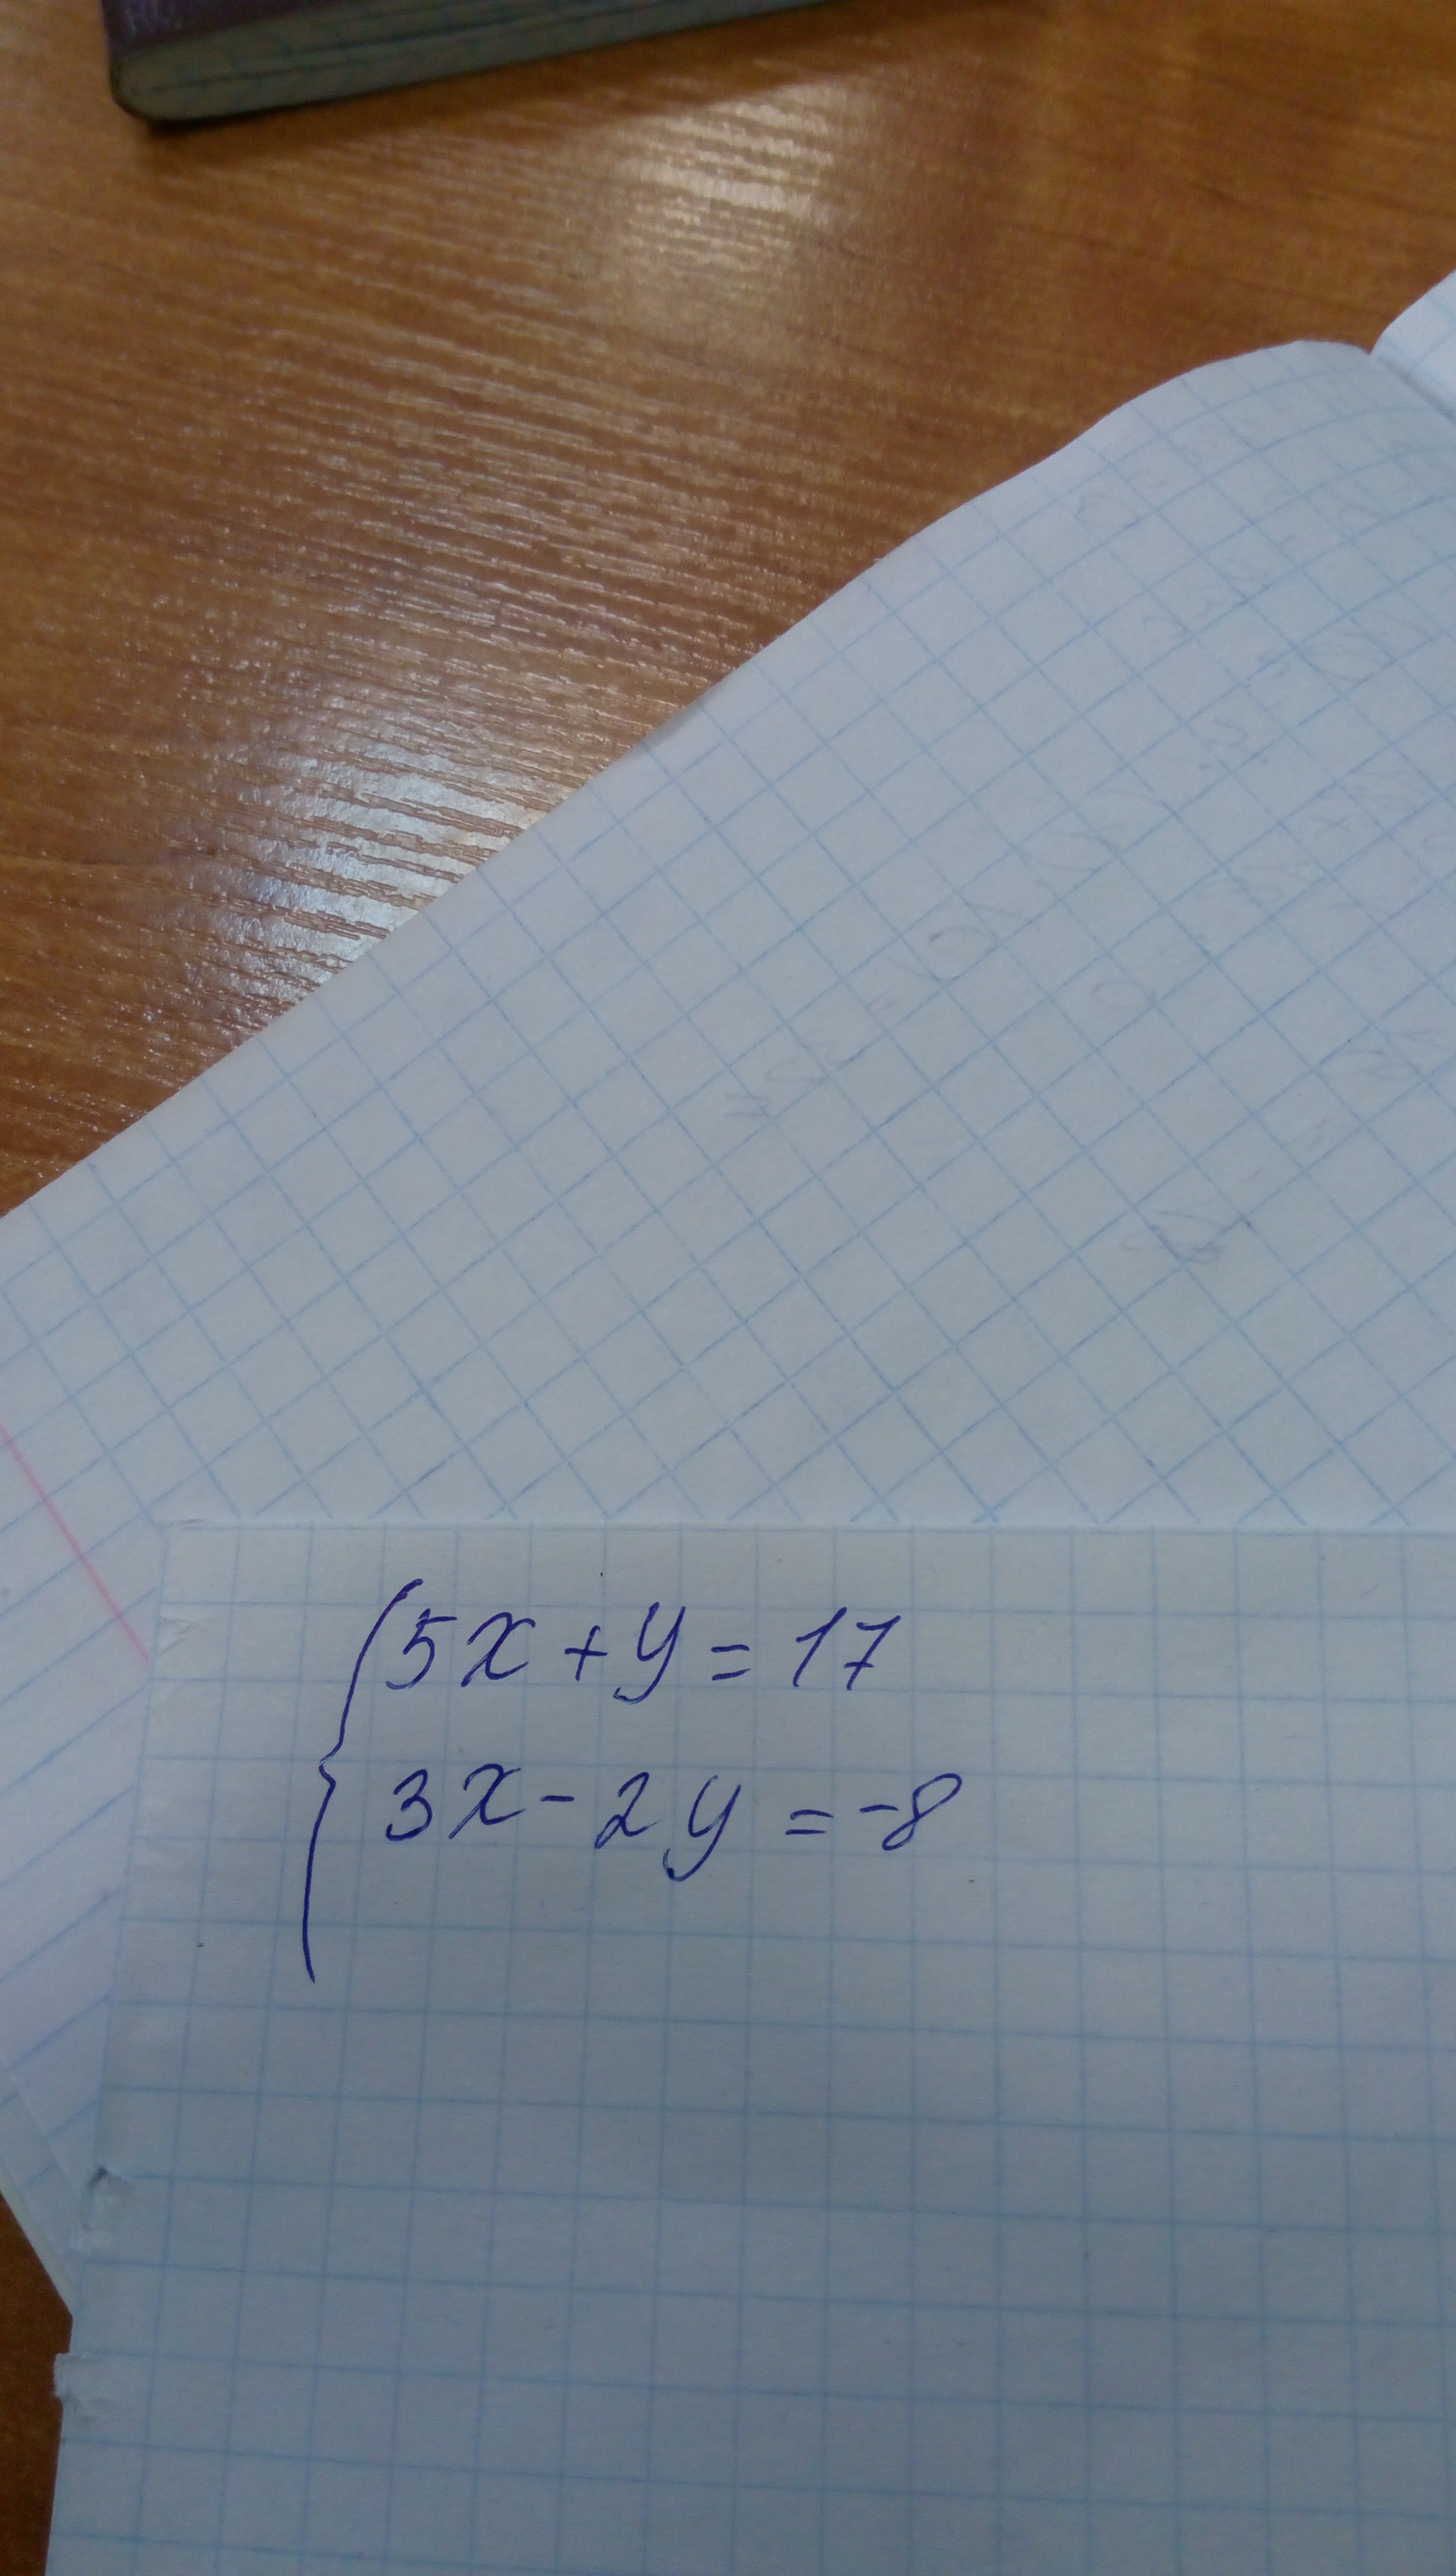 5x + y = 17
3x - 2y = -8